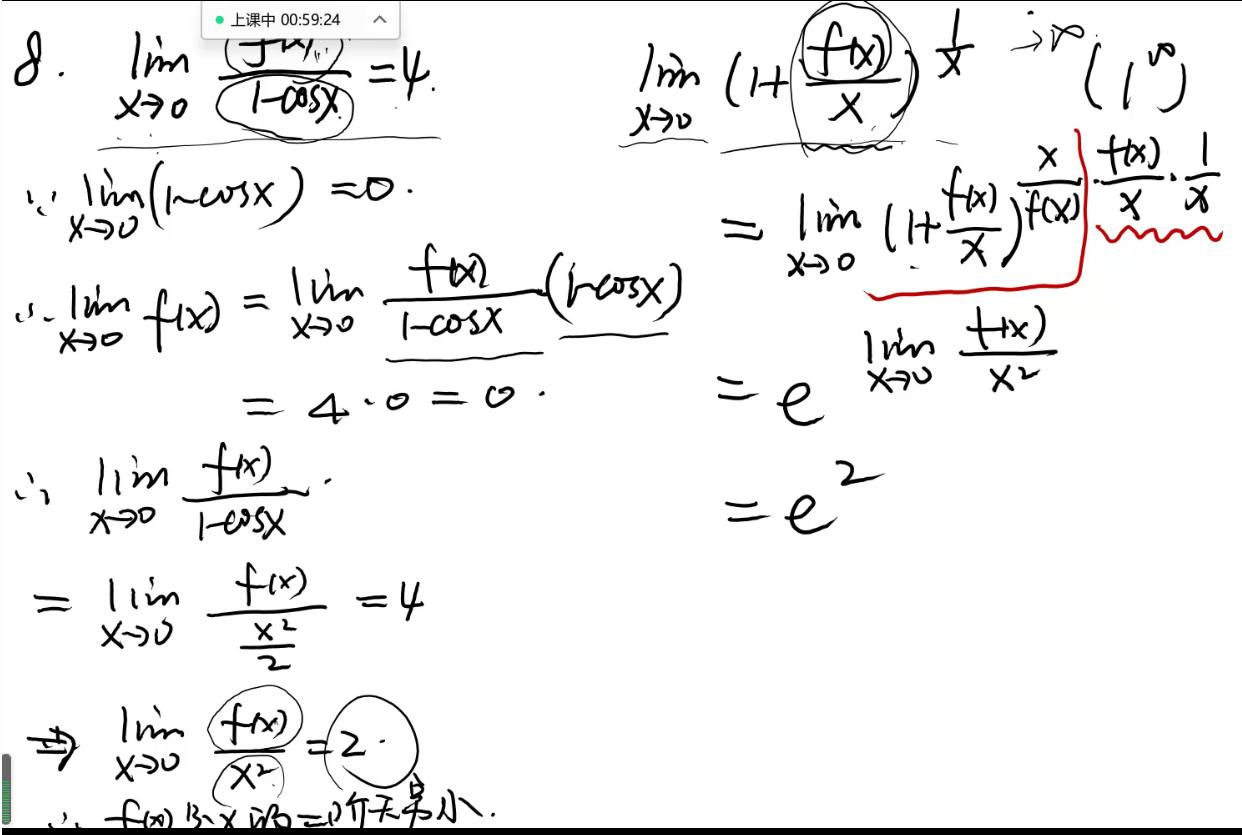 上课中 00:59:24
8. lim x→0 f(x)/(1-cosx) = 4.
∵ lim x→0 (1-cosx) = 0.
∴ lim x→0 f(x) = lim x→0 f(x)/(1-cosx) (1-cosx)
= 4·0 = 0.
∴ lim x→0 f(x)/(1-cosx).
= lim x→0 f(x)/(x²/2) = 4
⇒ lim x→0 f(x)/x² = 2.
∴ f(x)为x的二阶无穷小.
lim x→0 (1+f(x)/x)^(1/x) →∞ (1^∞)
= lim x→0 (1+f(x)/x)^(x/f(x) · f(x)/x · 1/x)
= e^(lim x→0 f(x)/x²)
= e²